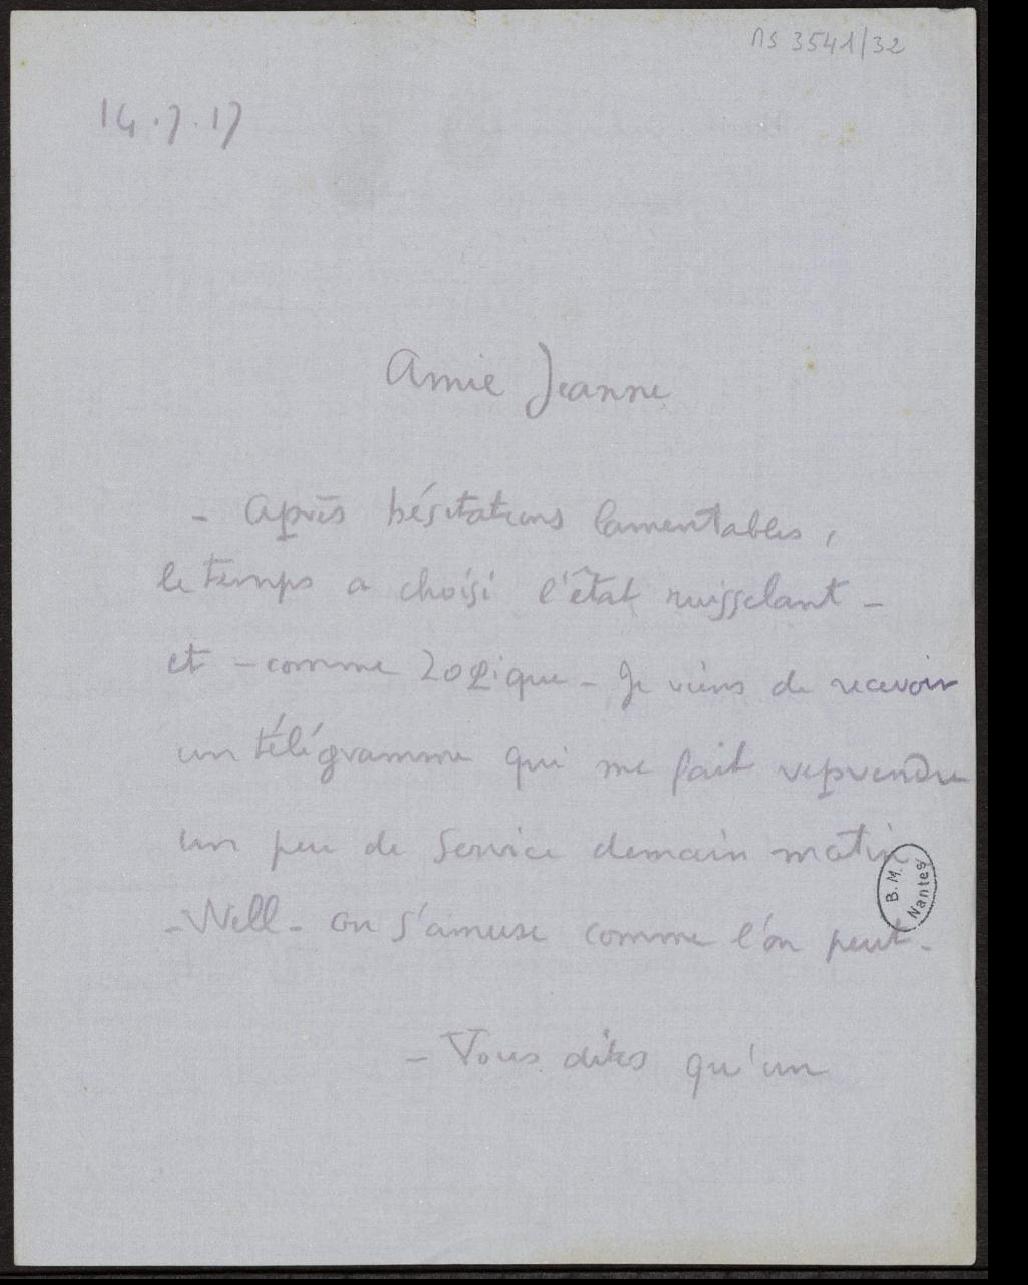 MS 3541/32
14.7.17
Amie Jeanne
- Après hésitations lamentables,
le temps a choisi l'état ruisselant -
et - comme logique - Je viens de recevoir
un télégramme qui me fait reprendre
un peu de Service demain matin
- Well - on s'amuse comme l'on peut -
B.M. Nantes
- Vous dites qu'un